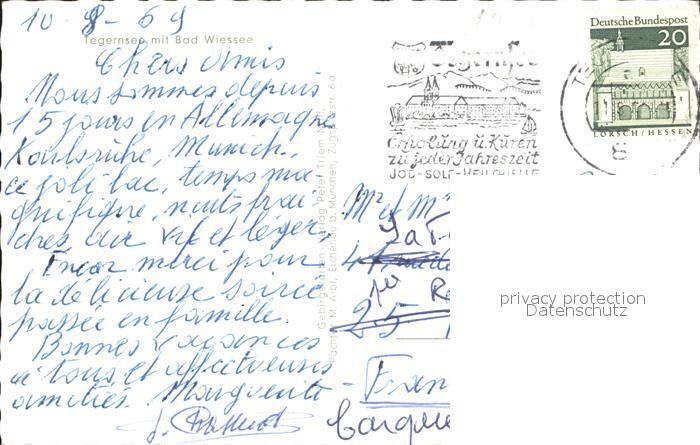 10-8-69
Tegernsee mit Bad Wiessee
Chers Amis
Nous sommes depuis
15 jours en Allemagne
Karlsruhe, Munich,
ce joli lac, temps ma
gnifique, nuits fraî
ches air vif et léger.
Encor merci pour
la délicieuse soirée
passée en famille.
Bonnes vacances
à tous et affectueuses
amitiés. Marguerite -
J.
Tegernsee
Erholung u. Kuren
zu jeder Jahreszeit
JOD-SOLE-HEILQUELLE
Deutsche Bundespost
20
LORSCH/HESSEN
Mr et M
La
41,
25
R
Fran
privacy protection
Datenschutz